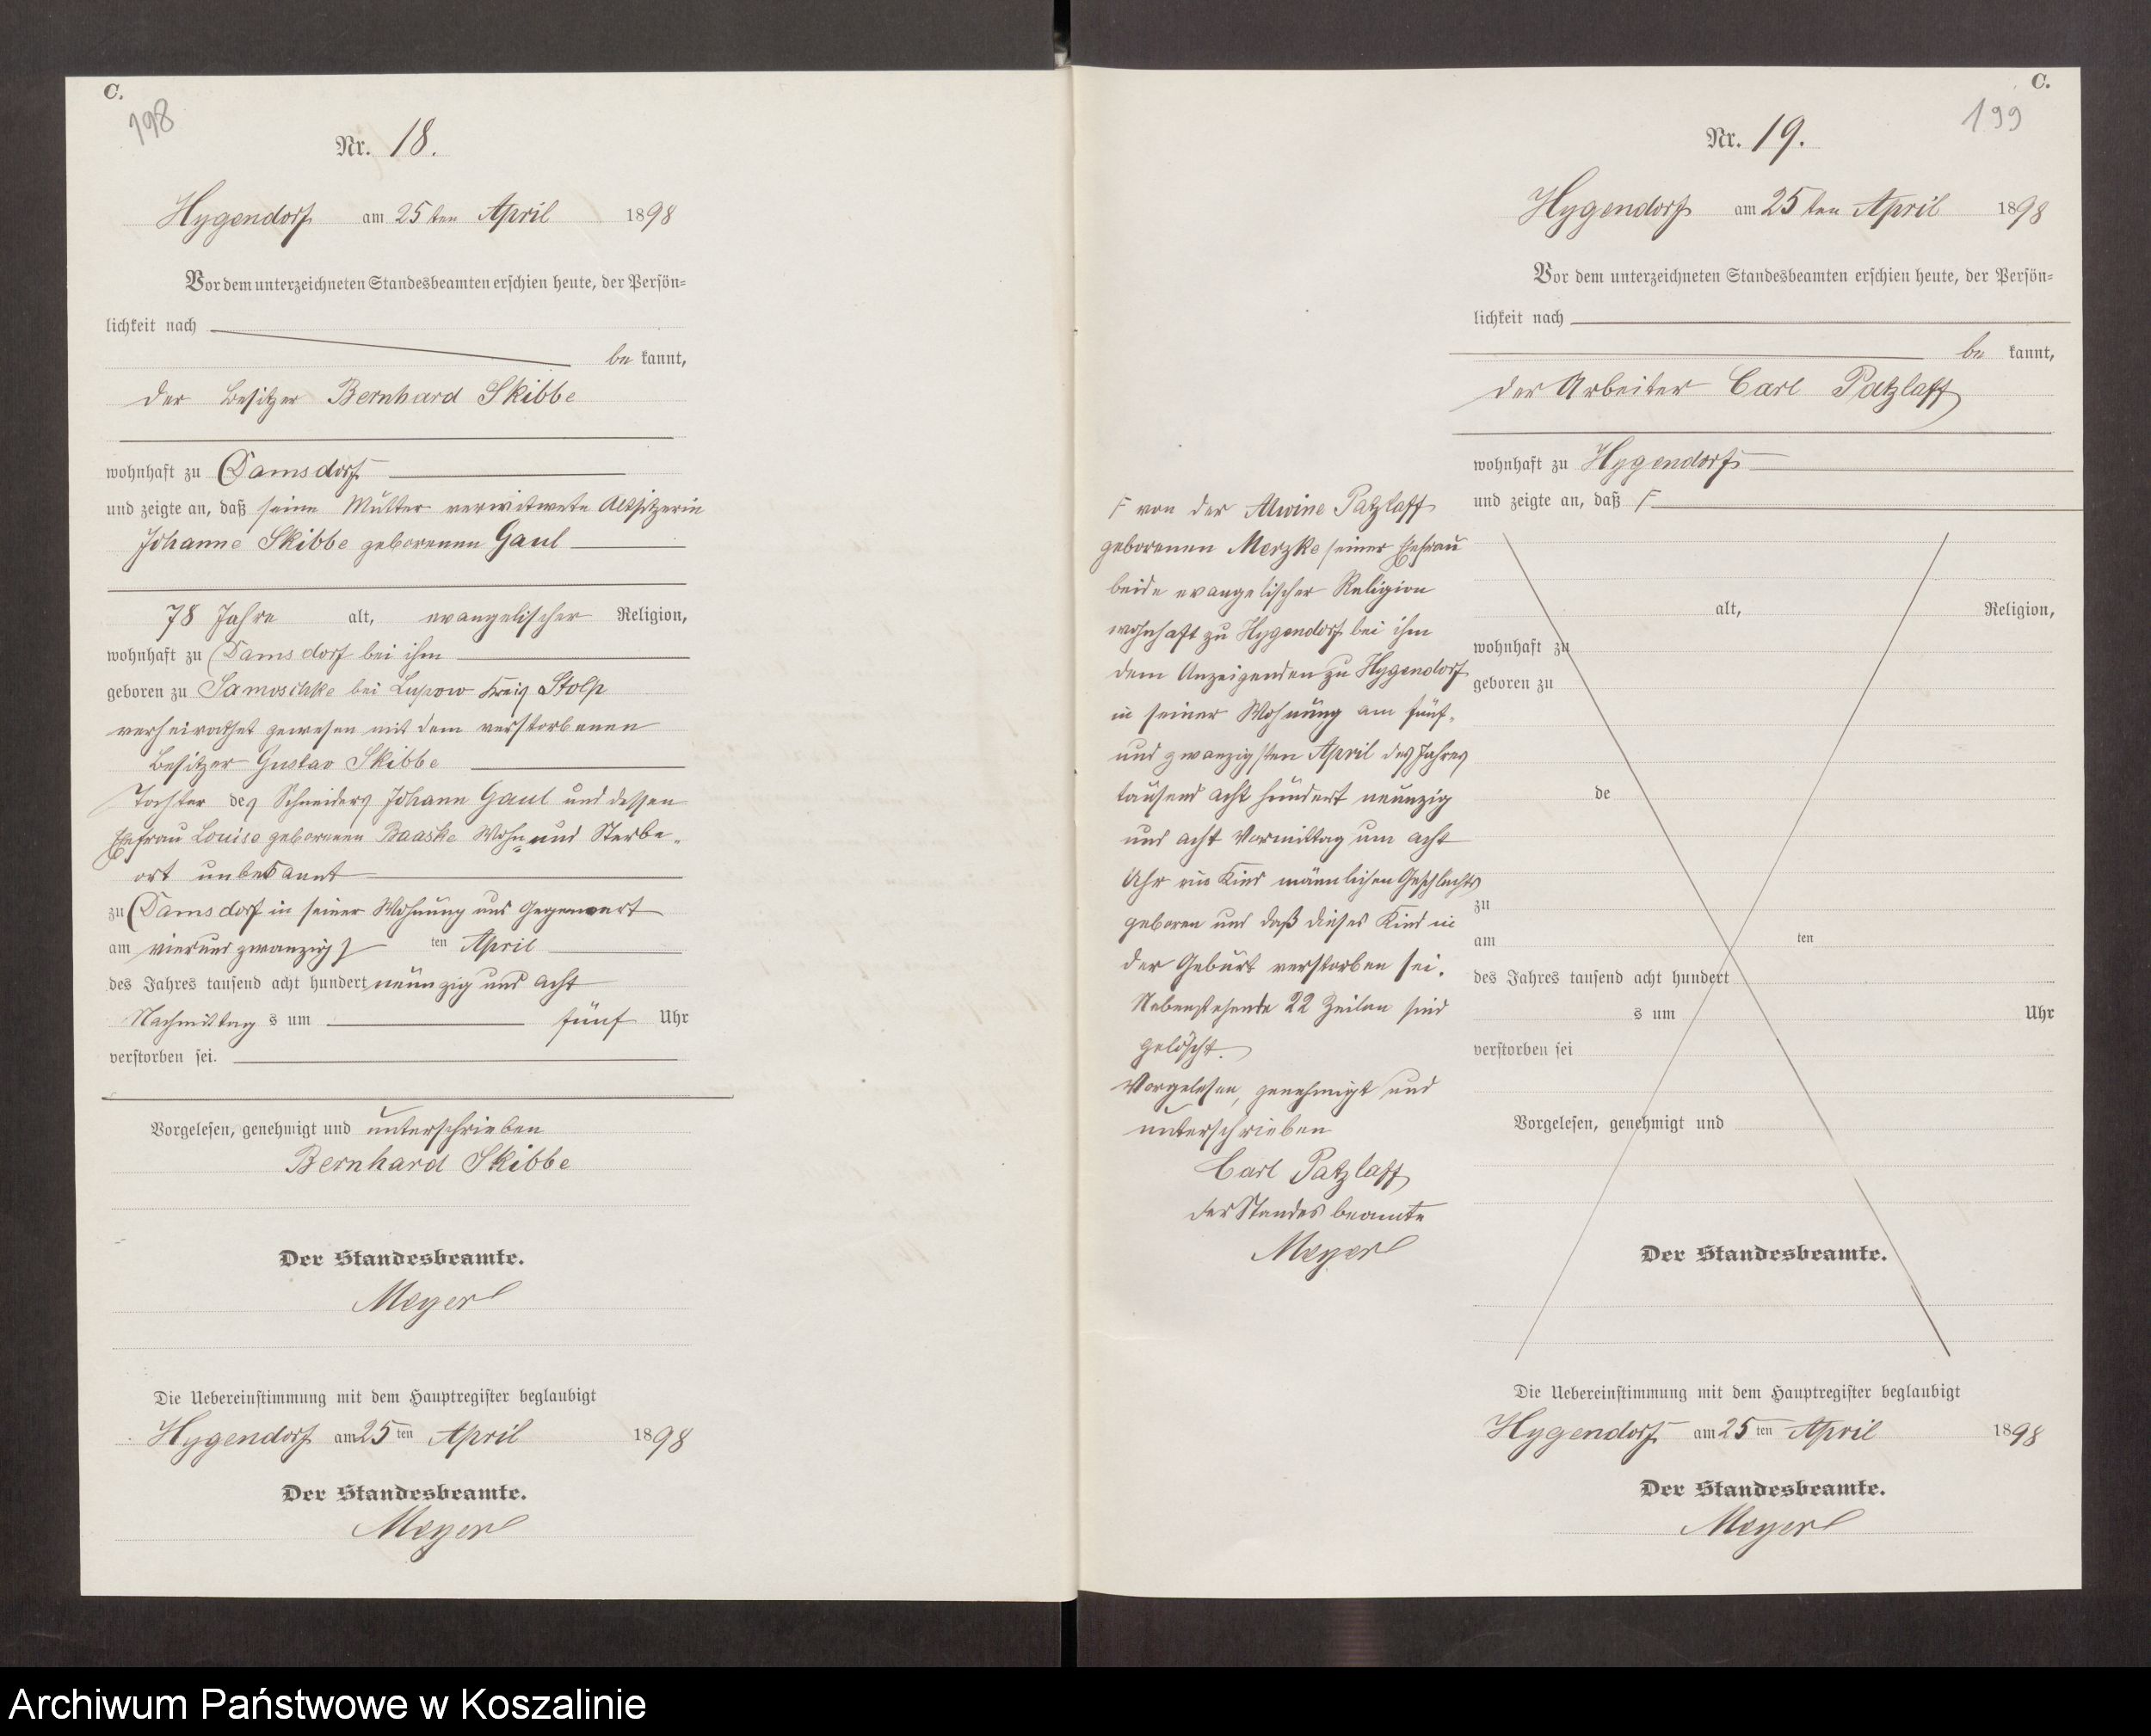 C.
198
Nr. 18.
Hygendorf am 25ten April 1898
Vor dem unterzeichneten Standesbeamten erschien heute, der Persön-
lichkeit nach
be kannt,
der Besitzer Bernhard Skibbe
wohnhaft zu Damsdorf
und zeigte an, daß seine Mutter verwitwete Altsitzerin
Johanne Skibbe geborenen Gaul
78 Jahre alt, evangelischer Religion,
wohnhaft zu Damsdorf bei ihm
geboren zu Samoschke bei Lupow Kreis Stolp
verheirathet gewesen mit dem verstorbenen
Besitzer Gustav Skibbe
Tochter des Schneiders Johann Gaul und dessen
Ehefrau Louise geborenen Baaske Wohn und Sterbe-
ort unbekannt
zu Damsdorf in seiner Wohnung und Gegenwart
am vierundzwanzigs ten April
des Jahres tausend acht hundert neunzig und acht
Nachmittag s um fünf Uhr
verstorben sei.
Vorgelesen, genehmigt und unterschrieben
Bernhard Skibbe
Der Standesbeamte.
Meyer
Die Uebereinstimmung mit dem Hauptregister beglaubigt
Hygendorf am 25ten April 1898
Der Standesbeamte.
Meyer
C.
199
Nr. 19.
Hygendorf am 25ten April 1898
Vor dem unterzeichneten Standesbeamten erschien heute, der Persön-
lichkeit nach
be kannt,
der Arbeiter Carl Patzlaff
wohnhaft zu Hygendorf
und zeigte an, daß F
F von der Alwine Patzlaff
geborenen Merzke seiner Ehefrau
beide evangelischer Religion
wohnhaft zu Hygendorf bei ihm
dem Anzeigenden zu Hygendorf
in seiner Wohnung am fünf-
und zwanzigsten April des Jahres
tausend acht hundert neunzig
und acht Vormittag um acht
Uhr ein Kind männlichen Geschlechts
geboren und daß dieses Kind in
der Geburt verstorben sei.
Nebenstehende 22 Zeilen sind
gelöscht.
Vorgelesen, genehmigt und
unterschrieben
Carl Patzlaff
der Standesbeamte
Meyer
alt, Religion,
wohnhaft zu
geboren zu
de
zu
am ten
des Jahres tausend acht hundert
s um Uhr
verstorben sei
Vorgelesen, genehmigt und
Der Standesbeamte.
Die Uebereinstimmung mit dem Hauptregister beglaubigt
Hygendorf am 25ten April 1898
Der Standesbeamte.
Meyer
Archiwum Państwowe w Koszalinie